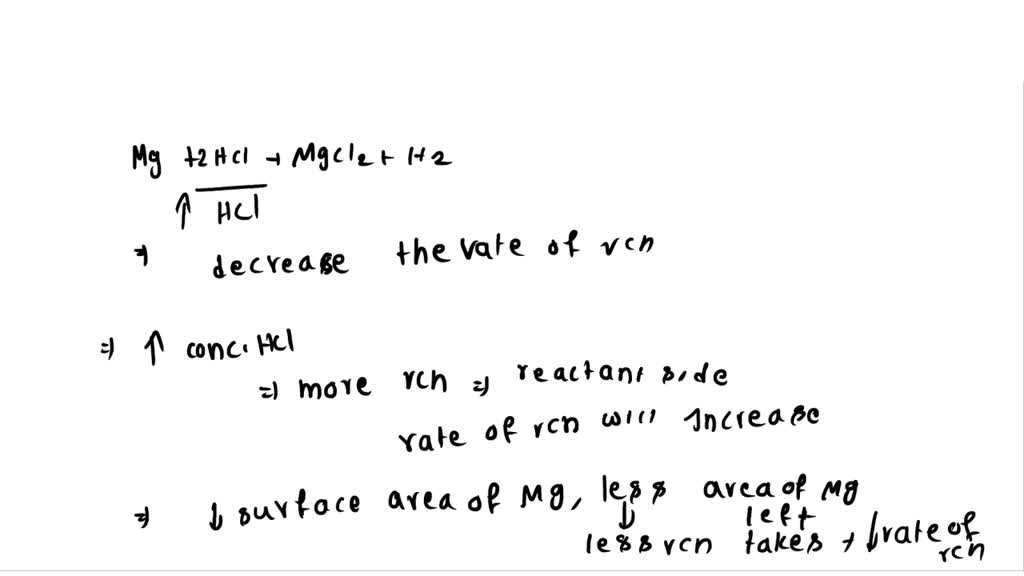 Mg +2HCl → MgCl2 + H2
↑ HCl
⇒ decrease the rate of rcn
⇒ ↑ conc. HCl
⇒ more rcn ⇒ reactant side
rate of rcn will increase
⇒ ↓ surface area of Mg, less area of Mg
↓ left
less rcn takes → ↓ rate of
rcn